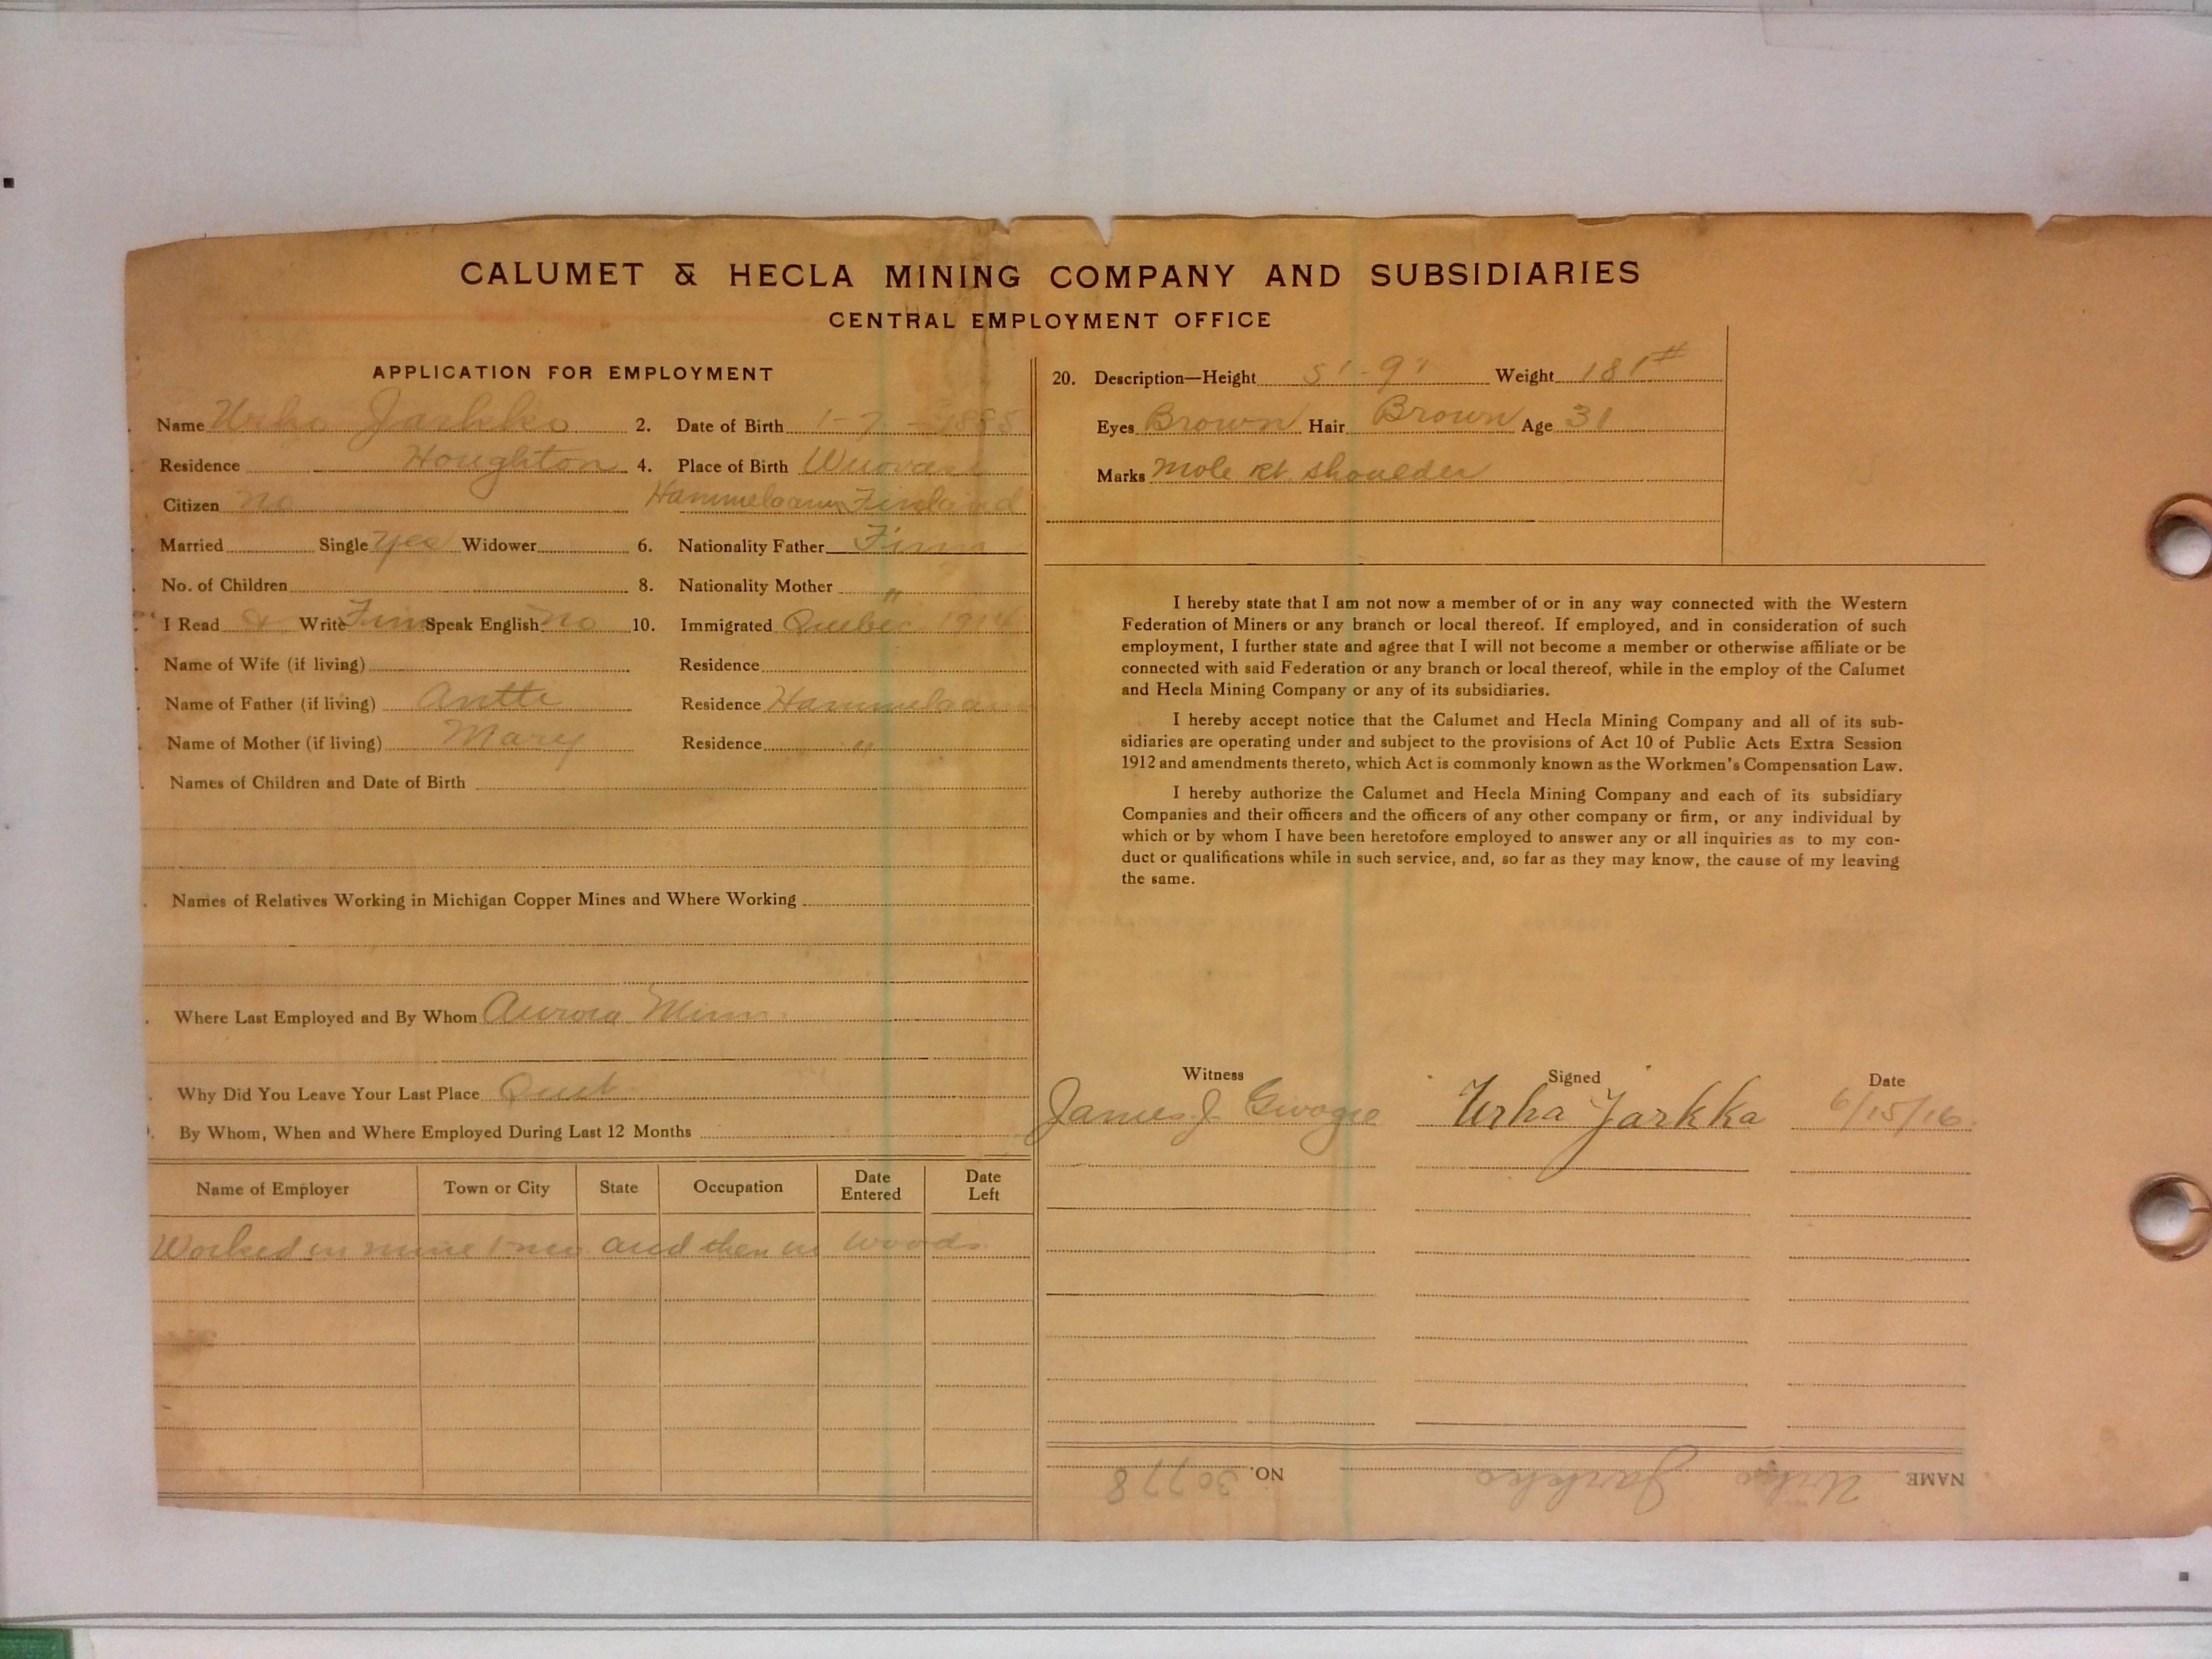 CALUMET & HECLA MINING COMPANY AND SUBSIDIARIES
CENTRAL EMPLOYMENT OFFICE
APPLICATION FOR EMPLOYMENT
Name Urho Jarkko 2. Date of Birth 1-7-1885
Residence Houghton 4. Place of Birth
Citizen no Finland
Married Single yes Widower 6. Nationality Father Finn
No. of Children 8. Nationality Mother "
I Read & Write Finn Speak English no 10. Immigrated Quebec 1914
Name of Wife (if living) Residence
Name of Father (if living) Antti Residence
Name of Mother (if living) Mary Residence "
Names of Children and Date of Birth
Names of Relatives Working in Michigan Copper Mines and Where Working
Where Last Employed and By Whom Aurora Minn.
Why Did You Leave Your Last Place Quit
By Whom, When and Where Employed During Last 12 Months
Name of Employer Town or City State Occupation Date Entered Date Left
Worked in mine 1 and then in woods.
20. Description—Height 5'-9" Weight 181#
Eyes Brown Hair Brown Age 31
Marks Mole rt. shoulder
I hereby state that I am not now a member of or in any way connected with the Western
Federation of Miners or any branch or local thereof. If employed, and in consideration of such
employment, I further state and agree that I will not become a member or otherwise affiliate or be
connected with said Federation or any branch or local thereof, while in the employ of the Calumet
and Hecla Mining Company or any of its subsidiaries.
I hereby accept notice that the Calumet and Hecla Mining Company and all of its sub-
sidiaries are operating under and subject to the provisions of Act 10 of Public Acts Extra Session
1912 and amendments thereto, which Act is commonly known as the Workmen's Compensation Law.
I hereby authorize the Calumet and Hecla Mining Company and each of its subsidiary
Companies and their officers and the officers of any other company or firm, or any individual by
which or by whom I have been heretofore employed to answer any or all inquiries as to my con-
duct or qualifications while in such service, and, so far as they may know, the cause of my leaving
the same.
Witness Signed Date
James J. Urha Jarkka 6/15/16.
NAME Urho Jarkko NO. 30778